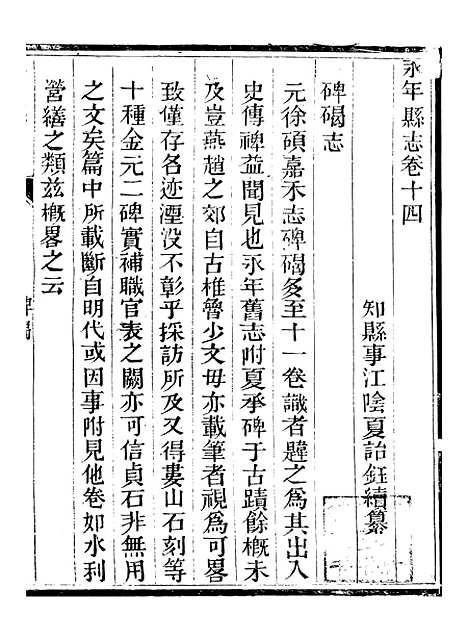 永年縣志卷十四
知縣事江陰夏詒鈺續纂
碑碣志
元徐碩嘉禾志碑碣多至十一卷識者韙之為其出入
史傳裨益聞見也永年舊志附夏承碑于古蹟餘概未
及豈燕趙之郊自古椎魯少文毋亦載筆者視為可畧
致僅存各迹湮没不彰乎採訪所及又得婁山石刻等
十種金元二碑實補職官表之闕亦可信貞石非無用
之文矣篇中所載斷自明代或因事附見他卷如水利
營繕之類茲概畧之云
碑碣